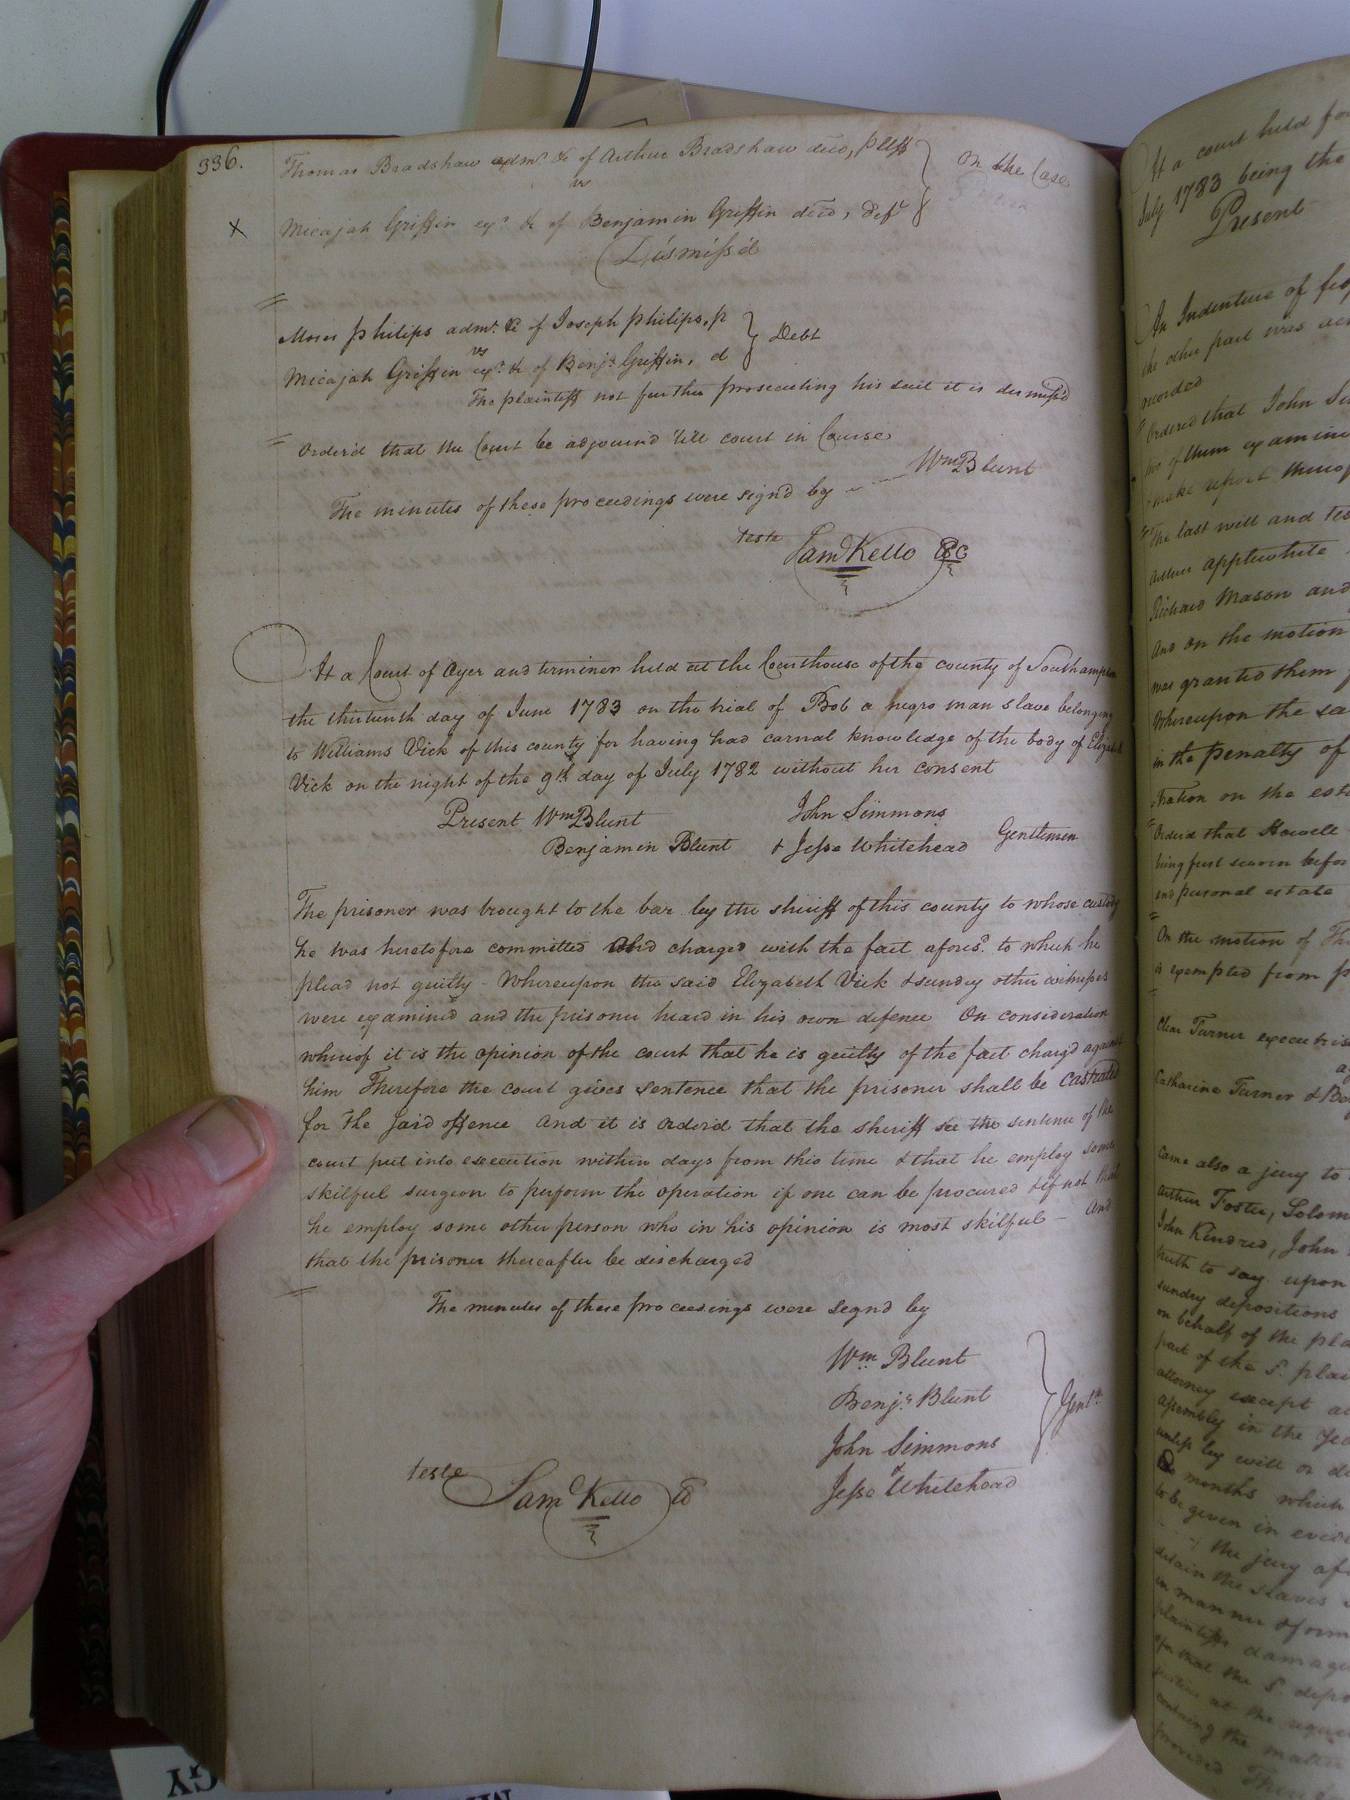 336.
Thomas Bradshaw admr. &c of Arthur Bradshaw decd, pltff } On the Case
vs
X Micajah Griffin exr. &c of Benjamin Griffin decd, deft
Dismiss'd
Moses Philips admr. &c of Joseph Philips, p } Debt
vs
Micajah Griffin exr. &c of Benja. Griffin, d
The plaintiff not further prosecuting his suit it is dismiss'd
Order'd that the Court be adjournd 'till court in Course
Wm Blunt
The minutes of these proceedings were sign'd by
teste
Saml Kello CC
At a Court of Oyer and terminer held at the Courthouse of the county of Southampton
the thirteenth day of June 1783 on the trial of Bob a negro man slave belonging
to Williams Vick of this county for having had carnal knowledge of the body of Elizabeth
Vick on the night of the 9th day of July 1782 without her consent
Present Wm Blunt John Simmons
Benjamin Blunt & Jesse Whitehead Gentlemen
The prisoner was brought to the bar by the sheriff of this county to whose custody
he was heretofore committed and charged with the fact aforesd. to which he
plead not guilty - Whereupon the said Elizabeth Vick & sundry other witnesses
were examined and the prisoner heard in his own defence On consideration
whereof it is the opinion of the court that he is guilty of the fact charg'd against
him Therefore the court gives sentence that the prisoner shall be castrated
for the said offence And it is orderd that the sheriff see the sentence of the
court put into execution within days from this time & that he employ some
skilful surgeon to perform the operation if one can be procured & if not that
he employ some other person who in his opinion is most skilful - And
that the prisoner thereafter be discharged
The minutes of these proceedings were signd by
Wm. Blunt
Benja. Blunt
John Simmons
Jesse Whitehead
} Gentn
teste
Saml Kello CC
At a court held for
July 1783 being the
Present
An Indenture of
the other part was
recorded
Ordered that John
of them examine
make report thereof
The last will and
Arthur Applewhite
Richard Mason and
And on the motion
was granted them
Whereupon the
in the penalty of
tration on the
Orderd that Howell
being first sworn
and personal estate
On the motion of
is exempted from
Turner
Catharine Turner &
Came also a jury to
Arthur Foster,
John Kindred, John
truth to say upon
sundry depositions
on behalf of the
part of the S.
attorney except
Assembly in the
unless by will or
months which
to be given in
the jury
detain the slaves
in manner & form
plaintiffs
that the S.
at the
the matter
provided